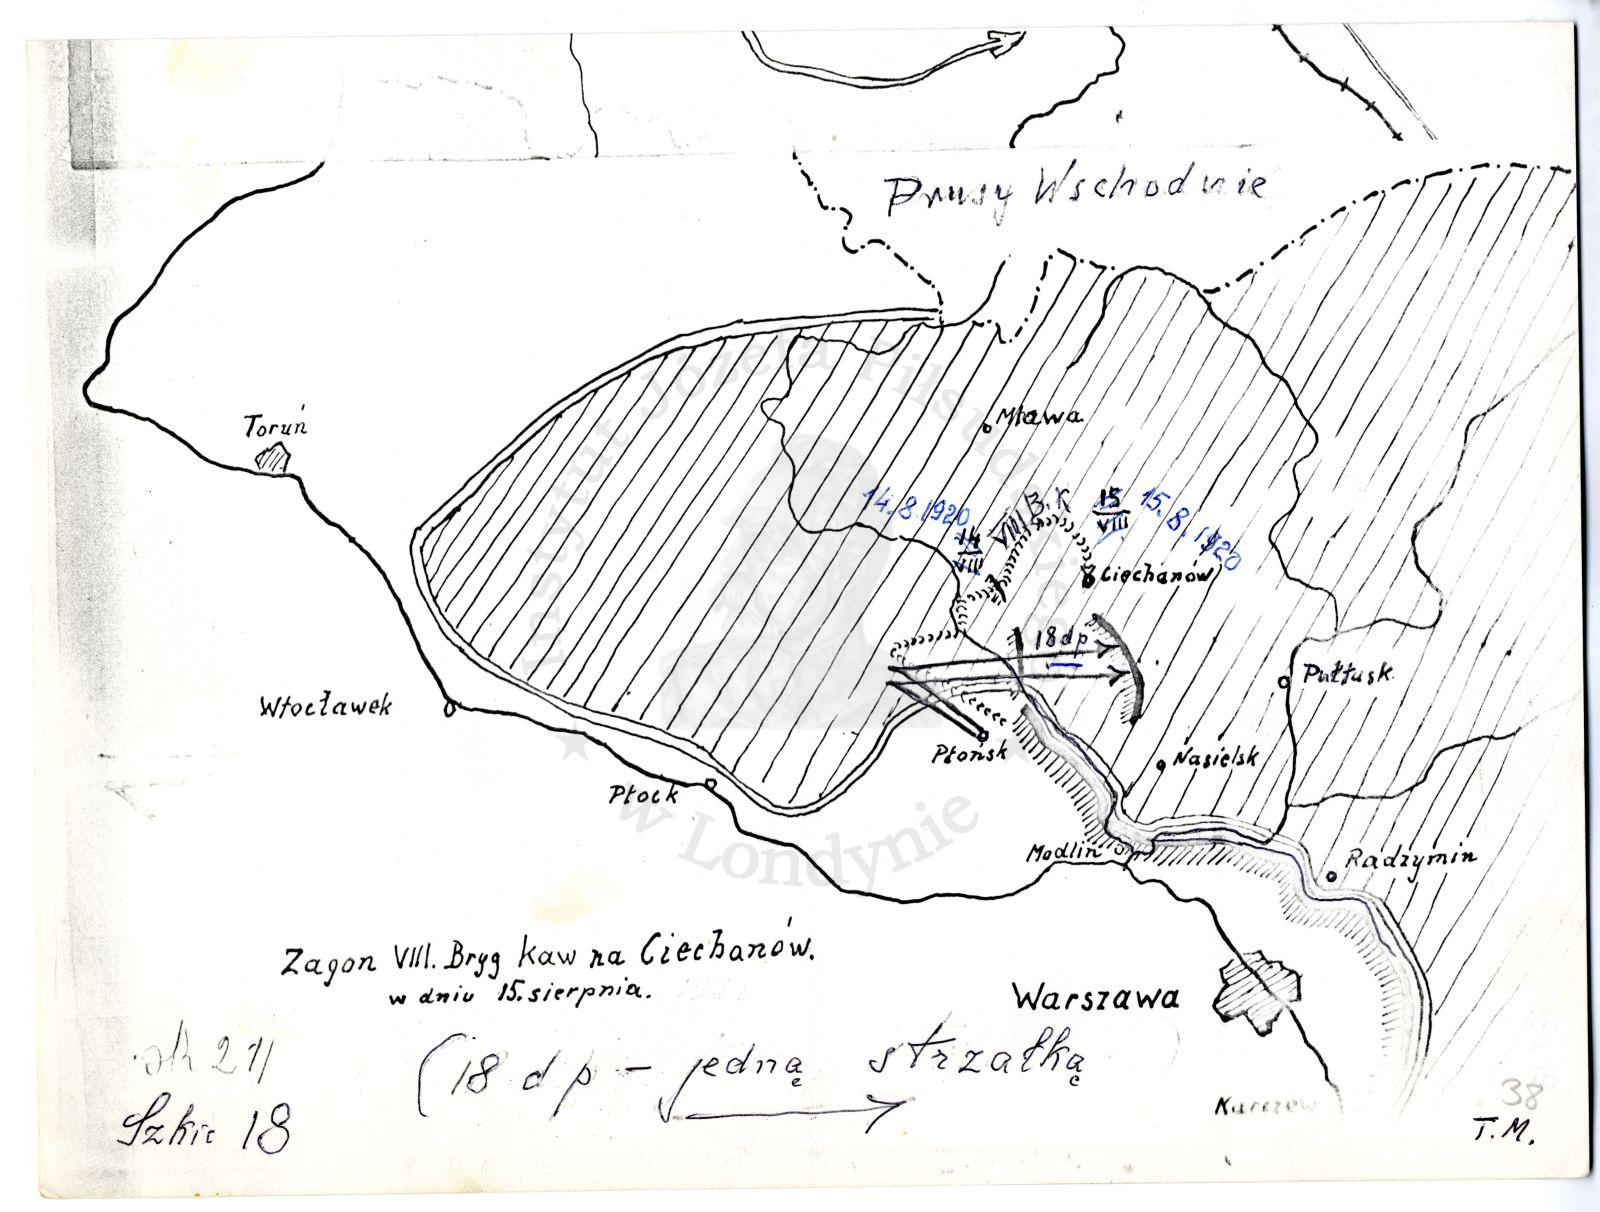 Prusy Wschodnie
Toruń
Mława
14.8.1920
VIII B.K
15
VIII
15.8.1920
14
VIII
Ciechanów
18dp
Pułtusk
Włocławek
Płońsk
Nasielsk
Płock
Modlin
Radzymin
Zagon VIII. Bryg kaw na Ciechanów.
w dniu 15. sierpnia.
Warszawa
(18 dp - jedną strzałką
Szkic 18
Karczew
38
T.M.
Instytut Józefa Piłsudskiego
w Londynie